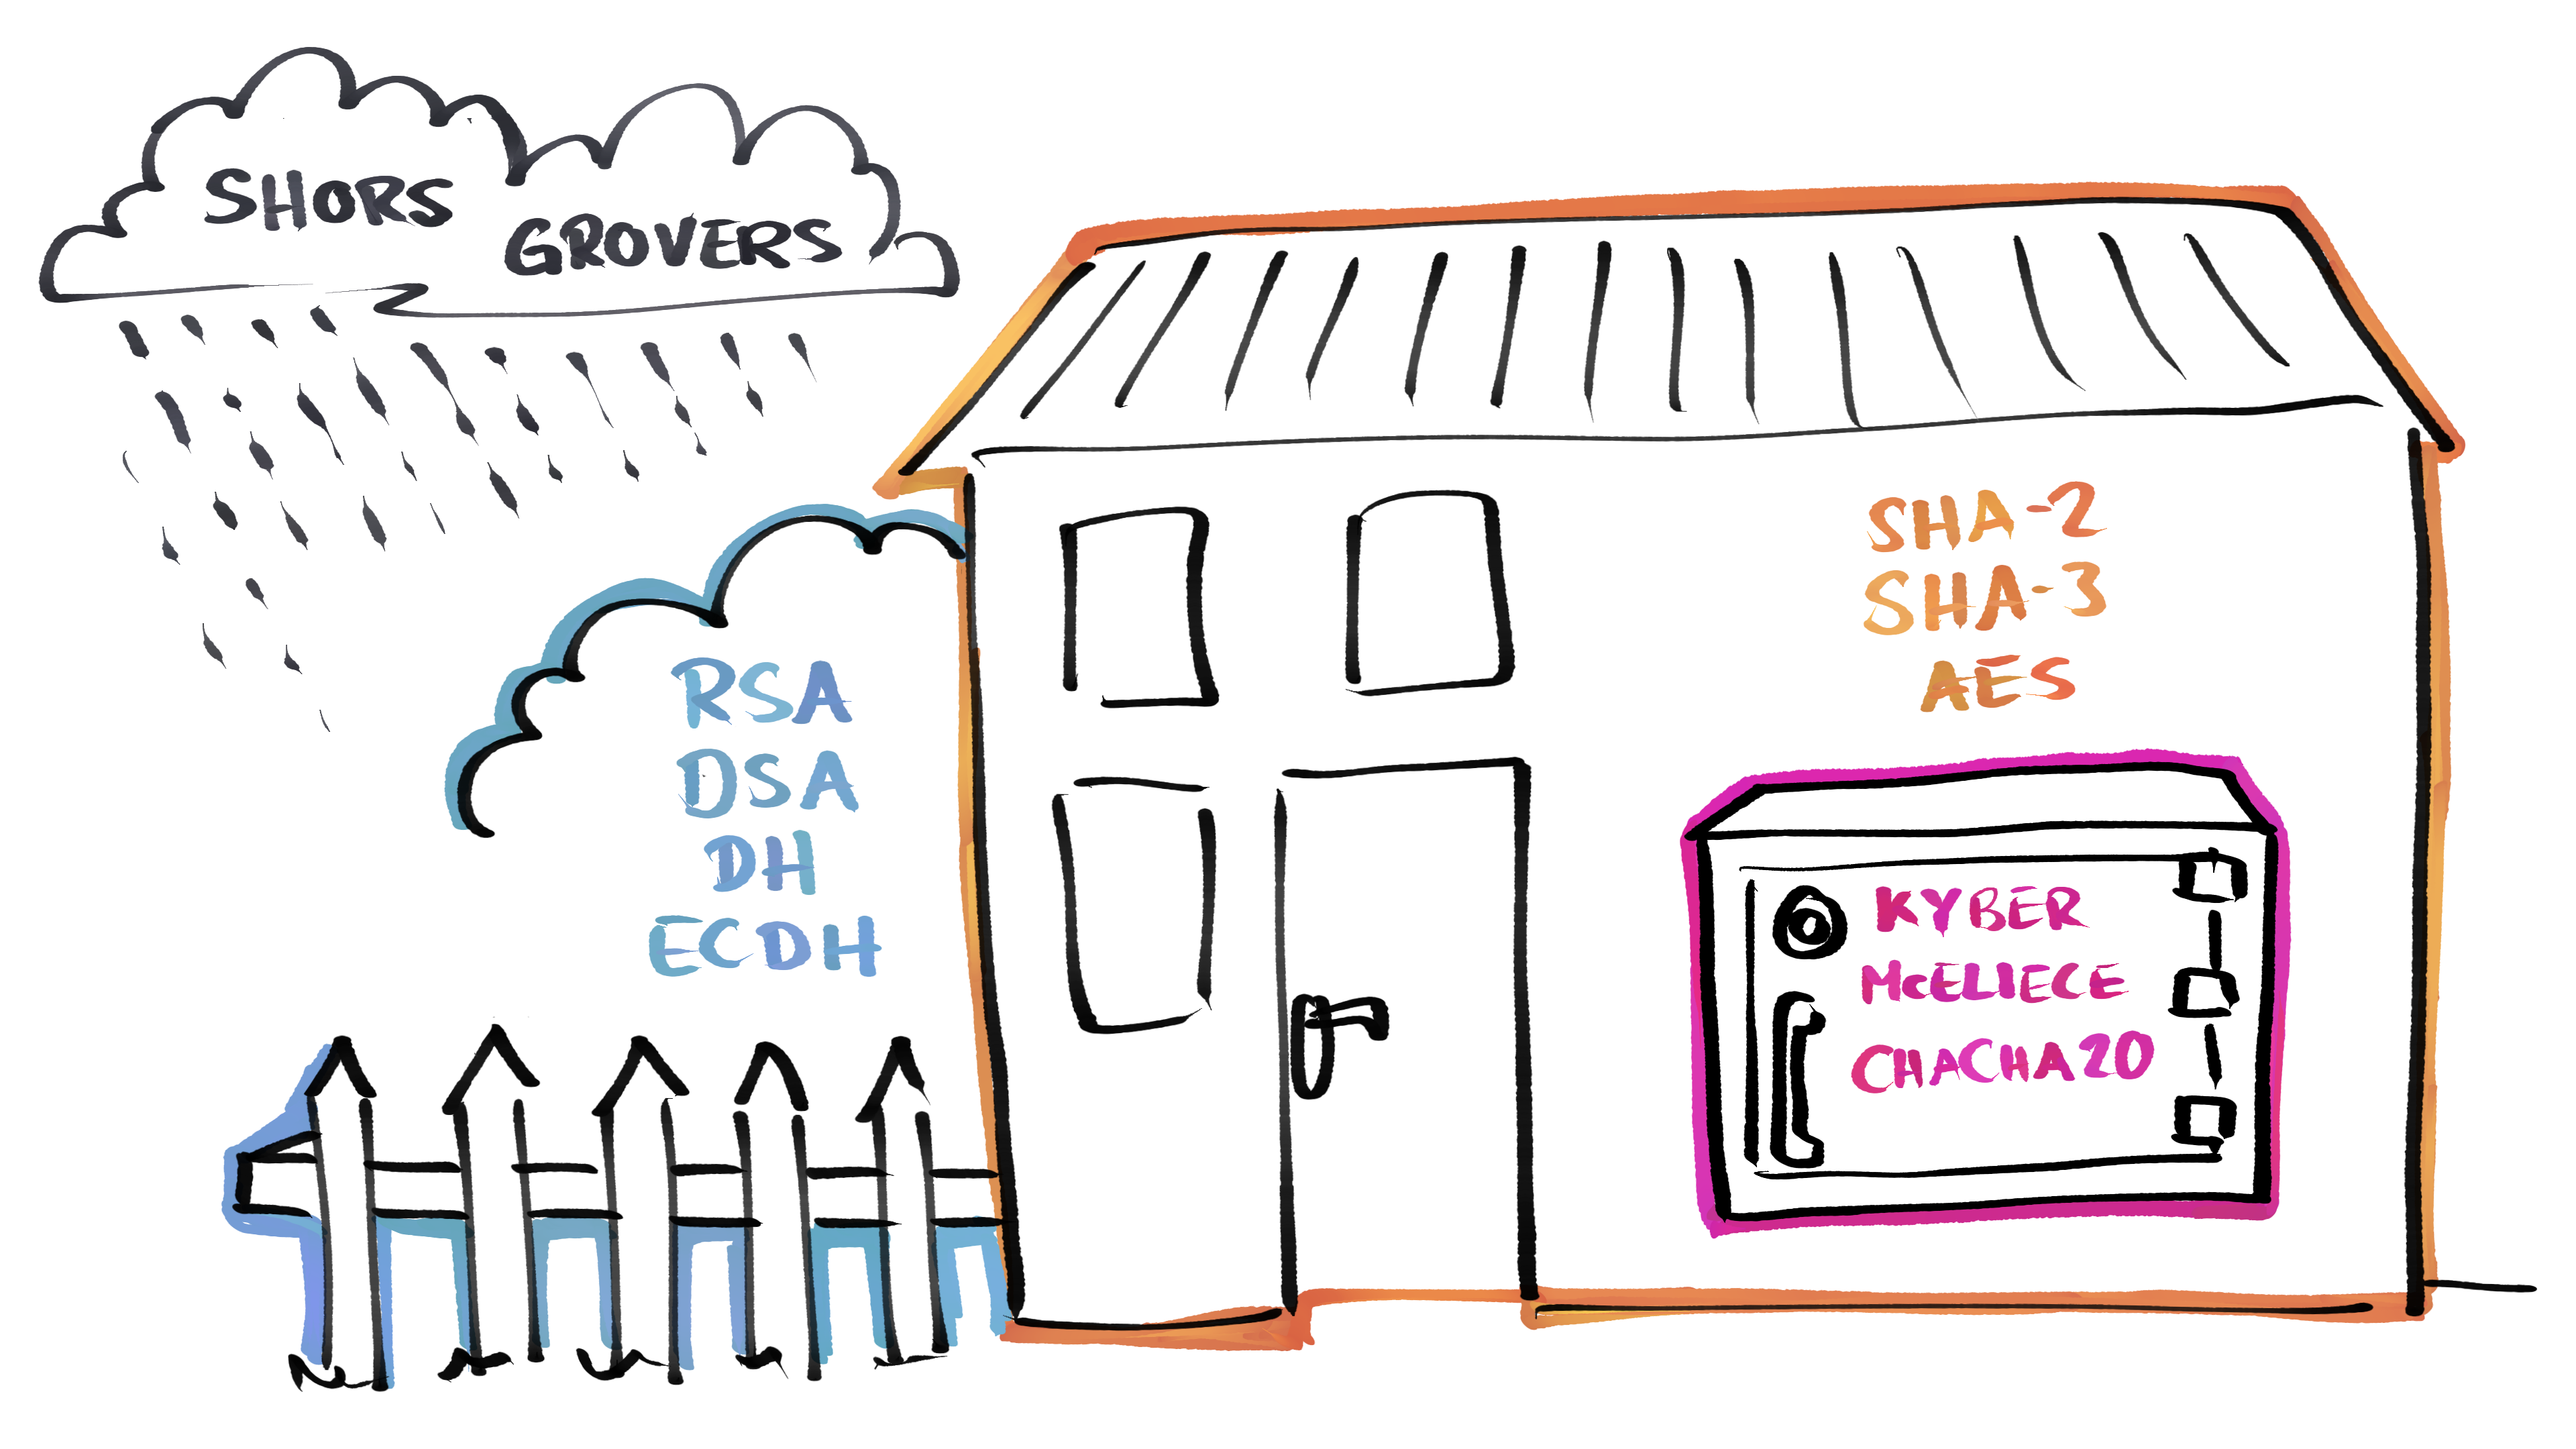 SHORS
GROVERS
RSA
DSA
DH
ECDH
SHA-2
SHA-3
AES
KYBER
McELIECE
CHACHA20